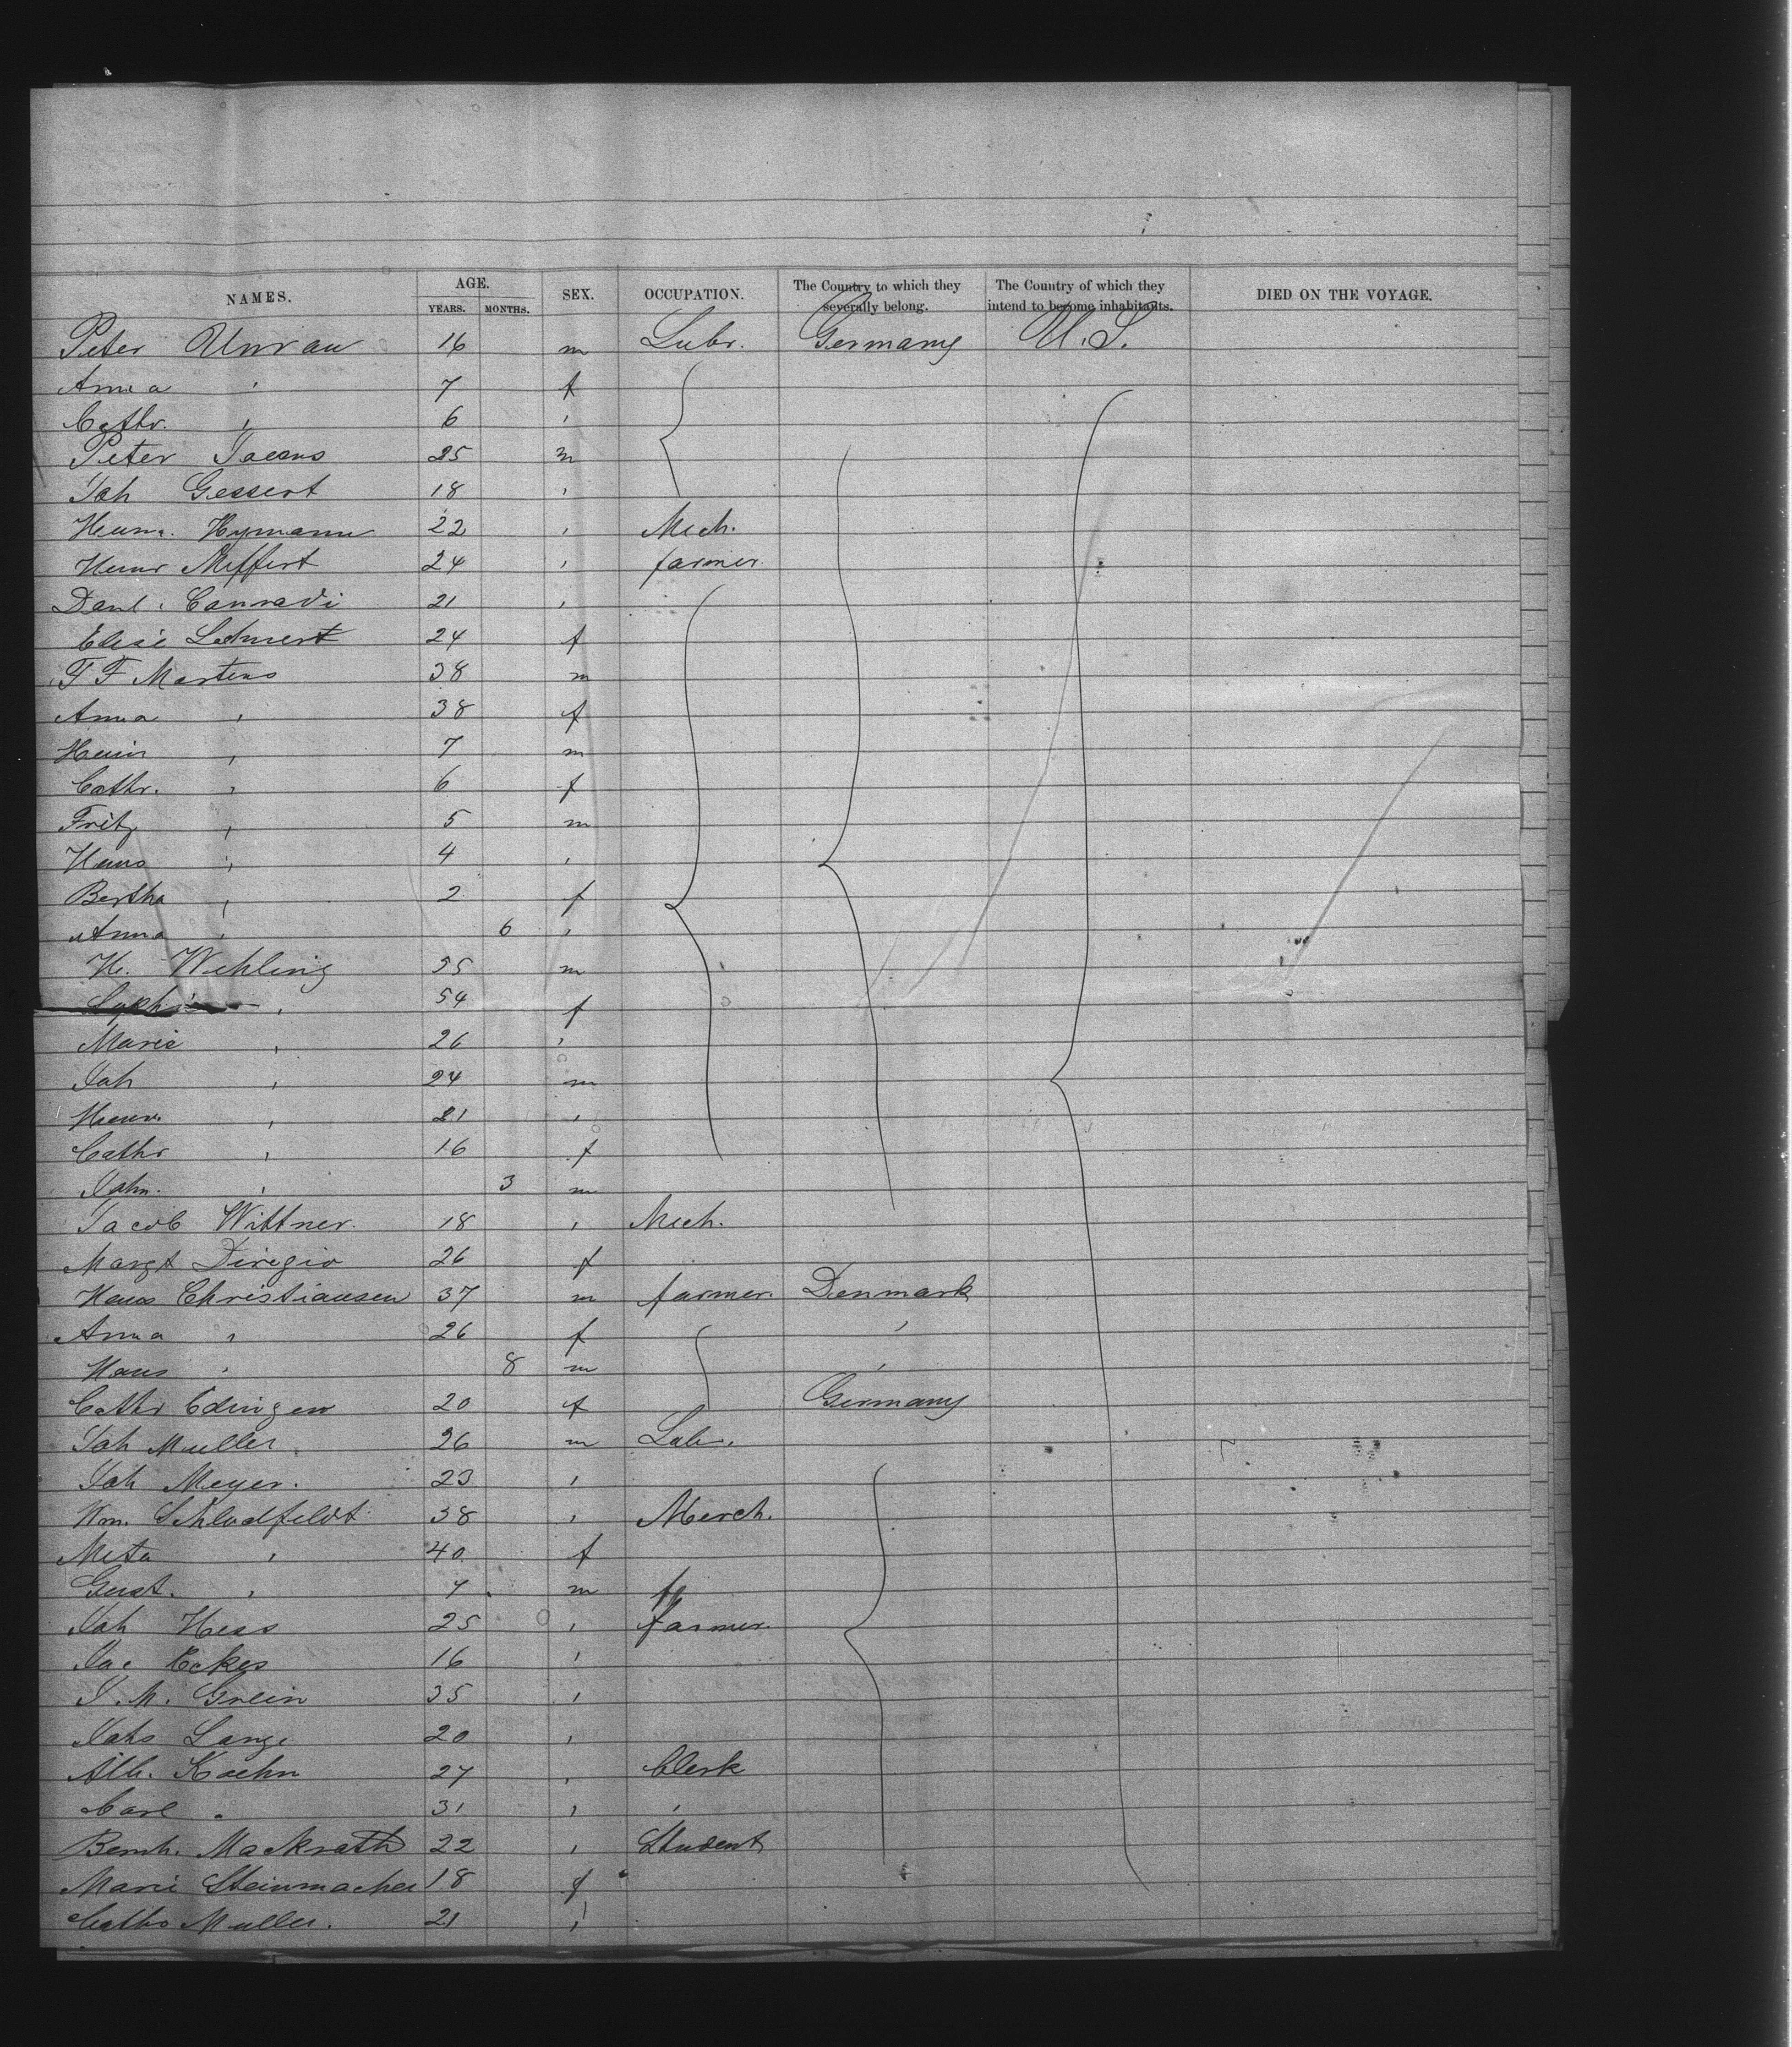 NAMES. AGE. YEARS. MONTHS. SEX. OCCUPATION. The Country to which they severally belong. The Country of which they intend to become inhabitants. DIED ON THE VOYAGE.
Peter Unrau 16 m Lubr. Germany U.S.
Anna " 7 f
Cathr. " 6 "
Peter 25 m
Joh Gessert 18 "
Heinr. Hymann 22 " Mech.
Heinr Meffert 24 " farmer.
Danl. Conradi 21 "
Elise 24 f
F F Martens 38 m
Anna " 38 f
Heinr " 7 m
Cathr. " 6 f
Fritz " 5 m
Hans " 4 "
Bertha " 2 f
Anna " 6 "
H. Wehling 55 m
Sophie " 54 f
Marie " 26 "
Joh " 24 m
Heinr. " 21 "
Cathr " 16 f
Johr. " 3 m
Jacob Wittner. 18 " Mech.
Margt Diregio 26 f
Hans Christiansen 37 m farmer. Denmark
Anna " 26 f "
Hans " 8 m "
Cathr Edinger 20 f Germany
Joh Muller. 26 m Lab.
Joh Meyer. 23 "
Wm. Schlodfeldt 38 " Merch.
Meta " 40 f
Gust. " 7 m
Joh Hess 25 " farmer.
Jac Eckes 16 "
J. M. Grein 35 "
Johs Lange 20 "
Alb. Koehn 27 " Clerk
Carl " 31 " "
Bernh. Mackrath 22 " Student
Marie Steinmacher 18 f
Cathr Muller. 21 "